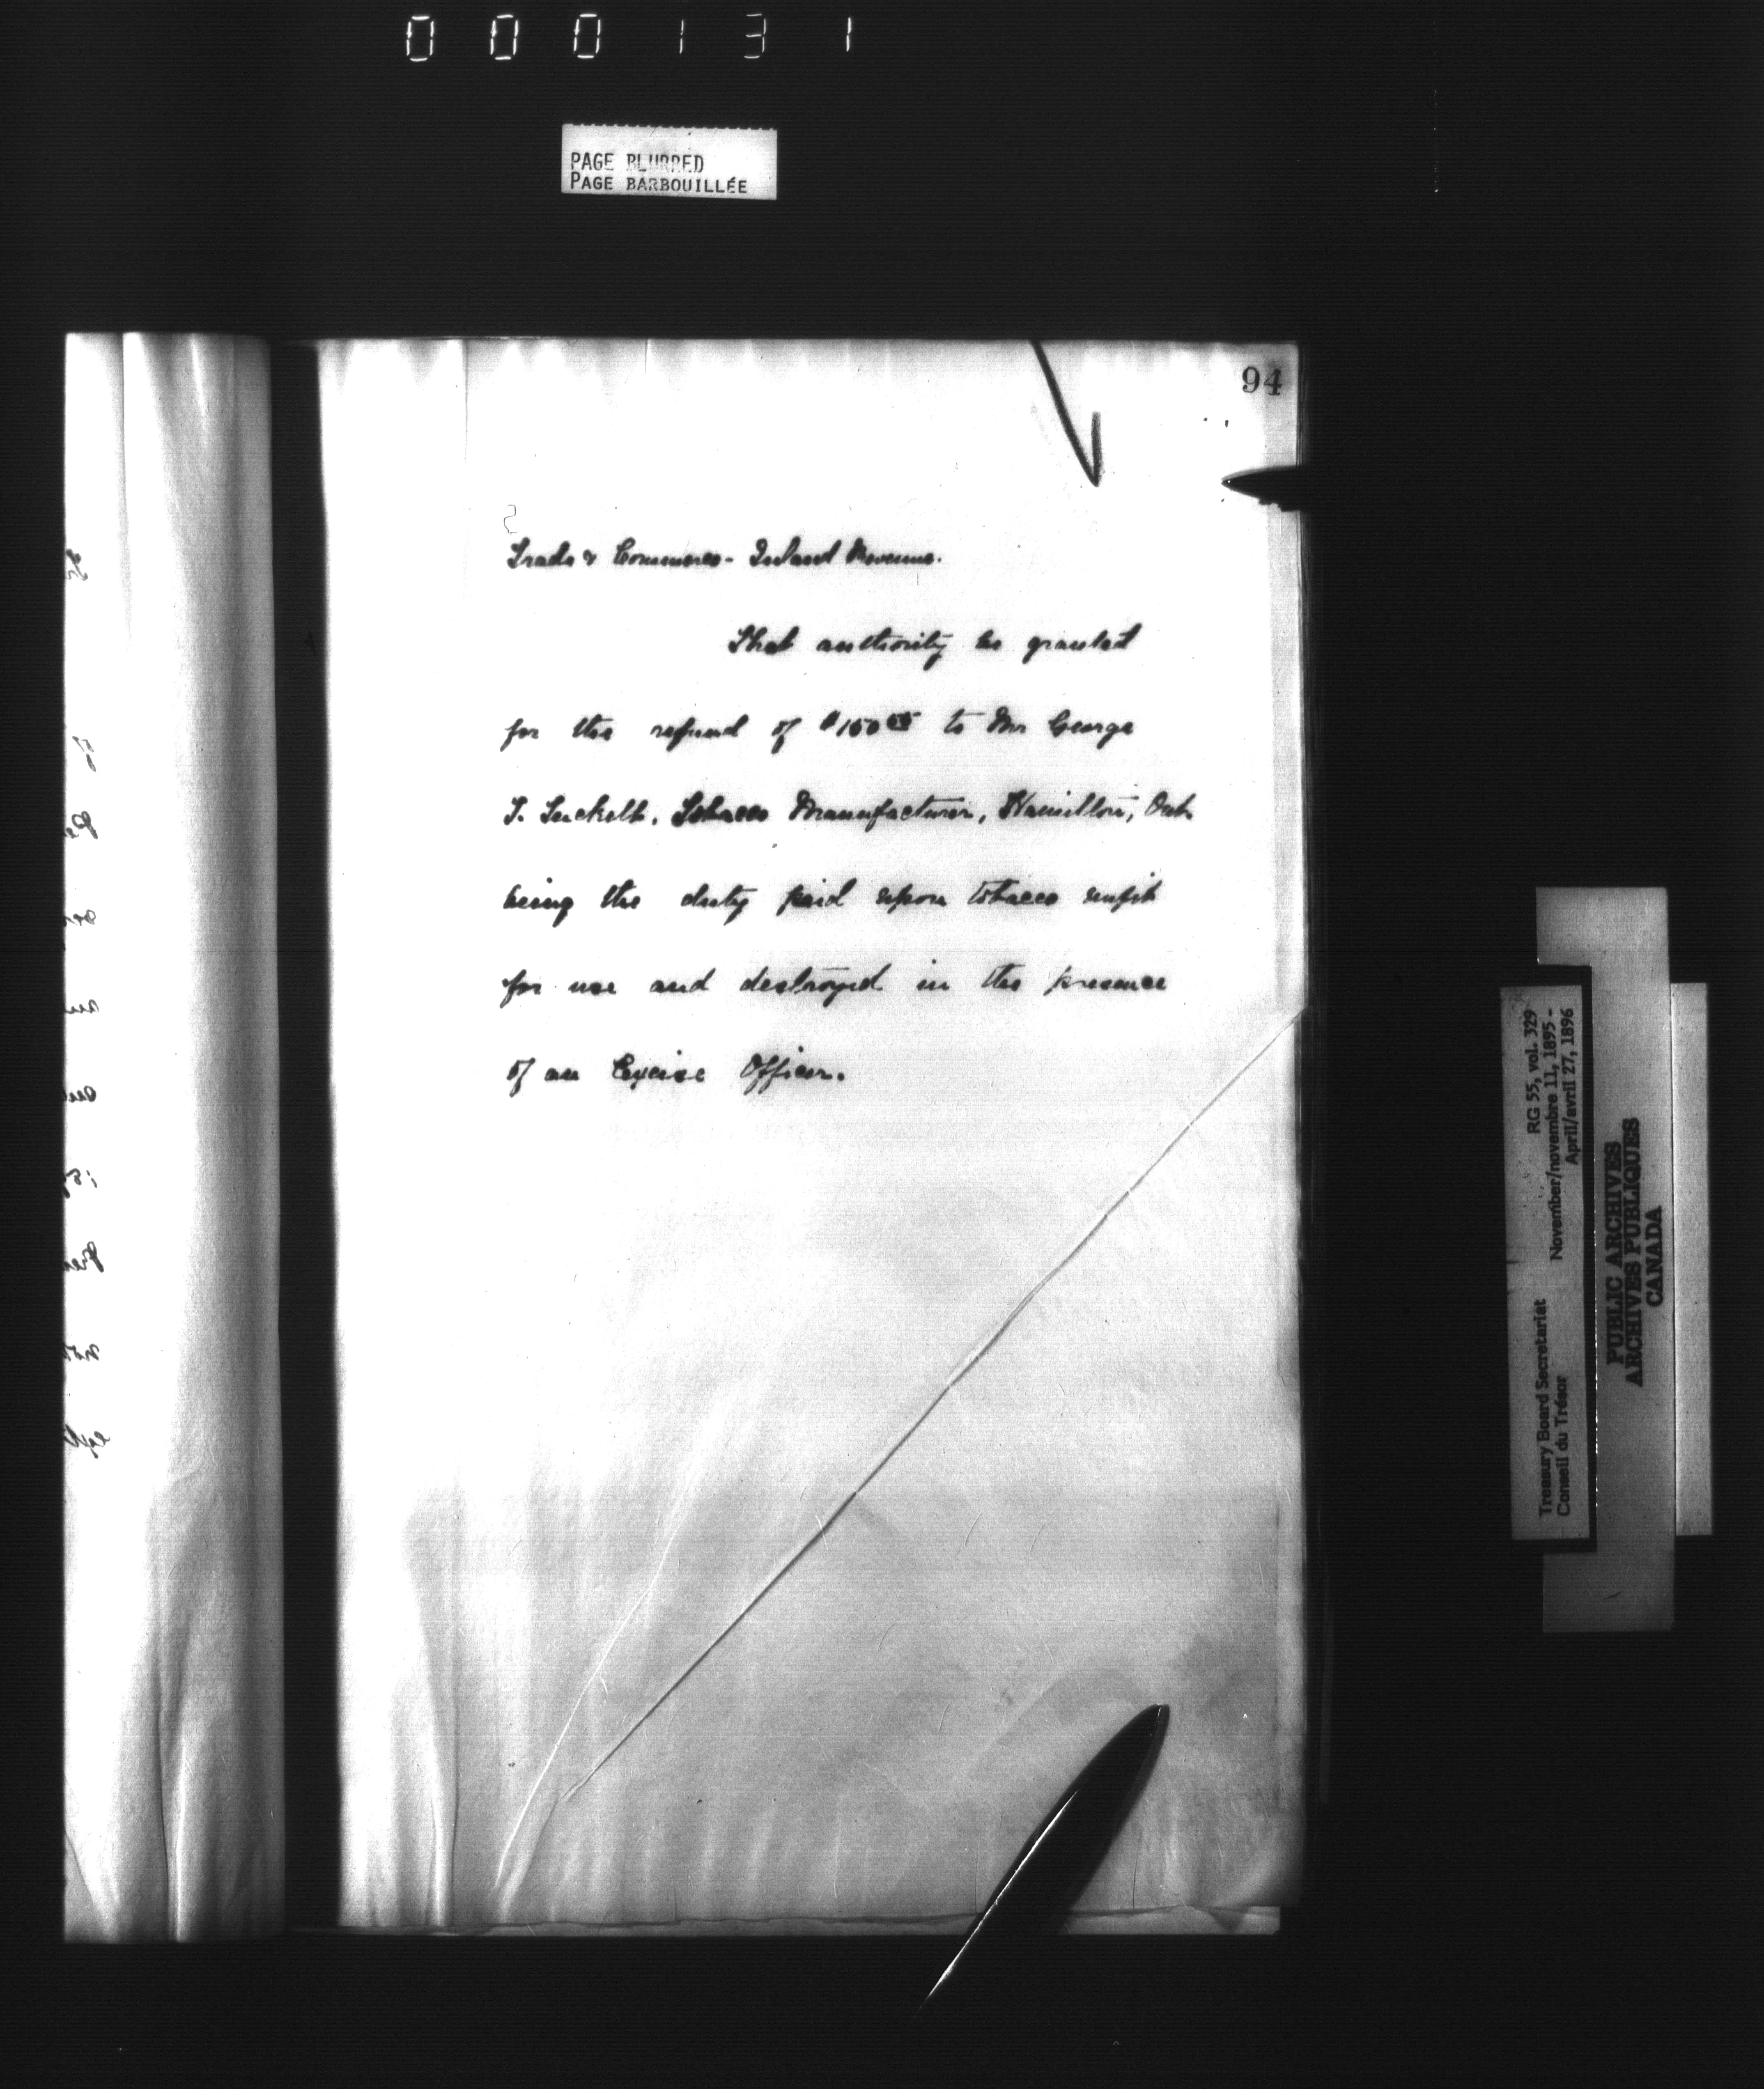 000131
PAGE BLURRED
PAGE BARBOUILLÉE
94
Trade & Commerce - Inland Revenue.
That authority be granted
for the refund of $150 to Mr George
T. Tuckett, Tobacco Manufacturer, Hamilton, Ont.
being the duty paid upon tobacco unfit
for use and destroyed in the presence
of an Excise Officer.
Treasury Board Secretariat RG 55, vol. 329
Conseil du Trésor November/novembre 11, 1895 -
April/avril 27, 1896
PUBLIC ARCHIVES
ARCHIVES PUBLIQUES
CANADA